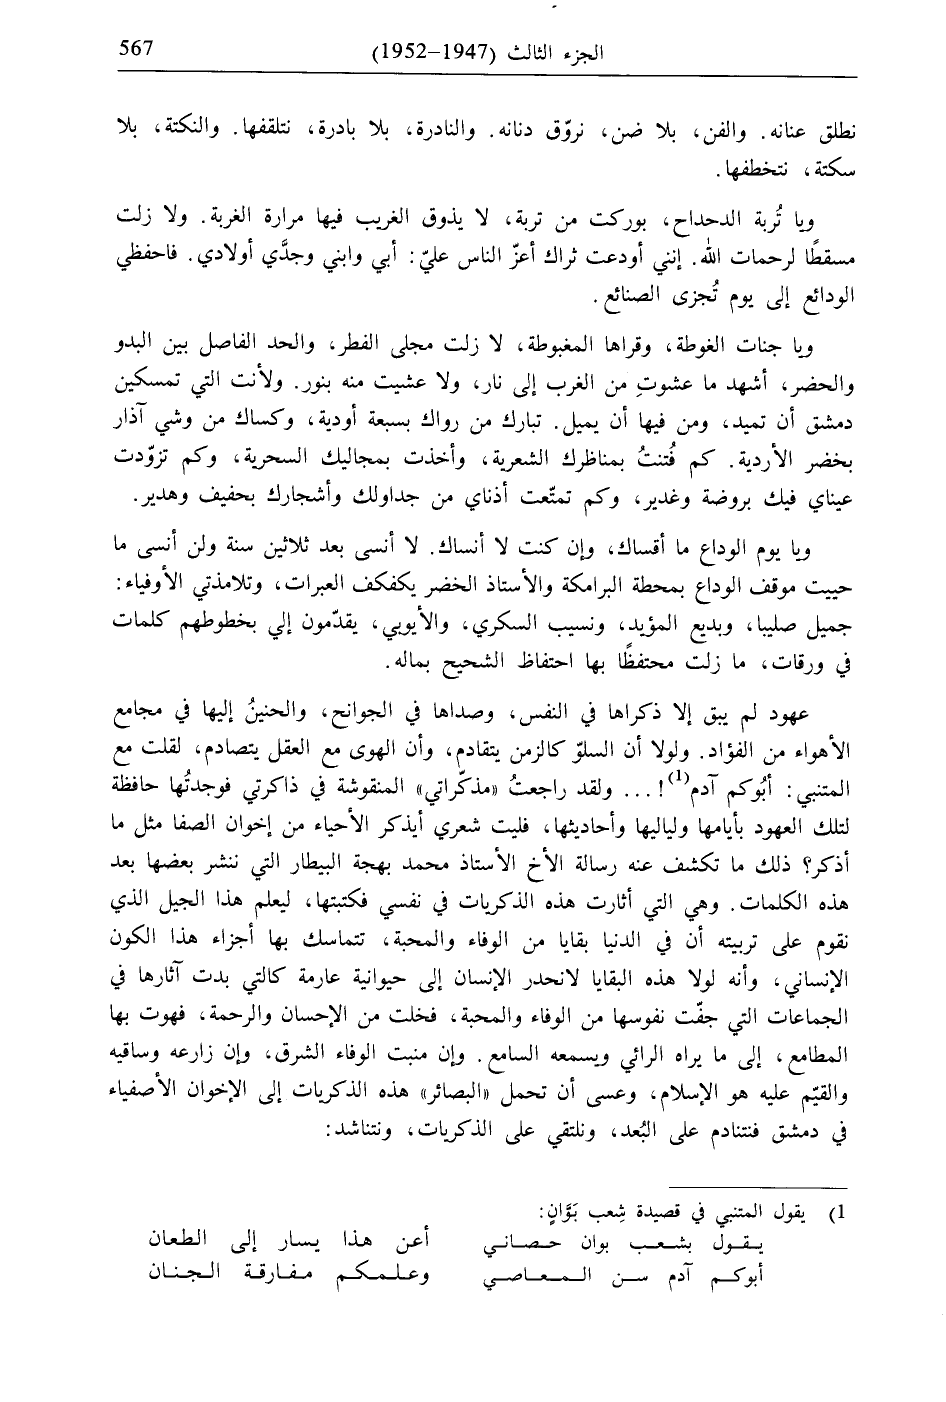 الجزء الثالث (1947–1952) 567
نطلق عنانه. والفن، بلا ضن، نروّق دنانه. والنادرة، بلا بادرة، نتلقفها. والنكتة، بلا
سكتة، نتخطفها.
ويا تُربة الدحداح، بوركت من تربة، لا يذوق الغريب فيها مرارة الغربة. ولا زلت
مسقطًا لرحمات الله. إنني أودعت ثراك أعزّ الناس عليّ: أبي وابني وجدَّي أولادي. فاحفظي
الودائع إلى يوم تُجزى الصنائع.
ويا جنات الغوطة، وقراها المغبوطة، لا زلت مجلى الفطر، والحد الفاصل بين البدو
والحضر، أشهد ما عشوتِ من الغرب إلى نار، ولا عشيت منه بنور. ولأنت التي تمسكين
دمشق أن تميد، ومن فيها أن يميل. تبارك من رواك بسبعة أودية، وكساك من وشي آذار
بخضر الأردية. كم فُتنتُ بمناظرك الشعرية، وأخذت بمجاليك السحرية، وكم تزوّدت
عيناي فيك بروضة وغدير، وكم تمتّعت أذناي من جداولك وأشجارك بحفيف وهدير.
ويا يوم الوداع ما أقساك، وإن كنت لا أنساك. لا أنسى بعد ثلاثين سنة ولن أنسى ما
حييت موقف الوداع بمحطة البرامكة والأستاذ الخضر يكفكف العبرات، وتلامذتي الأوفياء:
جميل صليبا، وبديع المؤيد، ونسيب السكري، والأيوبي، يقدّمون إلي بخطوطهم كلمات
في ورقات، ما زلت محتفظًا بها احتفاظ الشحيح بماله.
عهود لم يبق إلا ذكراها في النفس، وصداها في الجوانح، والحنينُ إليها في مجامع
الأهواء من الفؤاد. ولولا أن السلوّ كالزمن يتقادم، وأن الهوى مع العقل يتصادم، لقلت مع
المتنبي: أبُوكم آدم(1)!... ولقد راجعتُ «مذكّراتي» المنقوشة في ذاكرتي فوجدتُها حافظة
لتلك العهود بأيامها ولياليها وأحاديثها، فليت شعري أيذكر الأحياء من إخوان الصفا مثل ما
أذكر؟ ذلك ما تكشف عنه رسالة الأخ الأستاذ محمد بهجة البيطار التي ننشر بعضها بعد
هذه الكلمات. وهي التي أثارت هذه الذكريات في نفسي فكتبتها، ليعلم هذا الجيل الذي
نقوم على تربيته أن في الدنيا بقايا من الوفاء والمحبة، تتماسك بها أجزاء هذا الكون
الإنساني، وأنه لولا هذه البقايا لانحدر الإنسان إلى حيوانية عارمة كالتي بدت آثارها في
الجماعات التي جفّت نفوسها من الوفاء والمحبة، فخلت من الإحسان والرحمة، فهوت بها
المطامع، إلى ما يراه الرائي ويسمعه السامع. وإن منبت الوفاء الشرق، وإن زارعه وساقيه
والقيّم عليه هو الإسلام، وعسى أن تحمل «البصائر» هذه الذكريات إلى الإخوان الأصفياء
في دمشق فنتنادم على البُعد، ونلتقي على الذكريات، ونتناشد:
1) يقول المتنبي في قصيدة شِعب بَوَّانٍ:
يقول بشعب بوان حصاني أعن هذا يسار إلى الطعان
أبوكم آدم سن المعاصي وعلمكم مفارقة الجنان